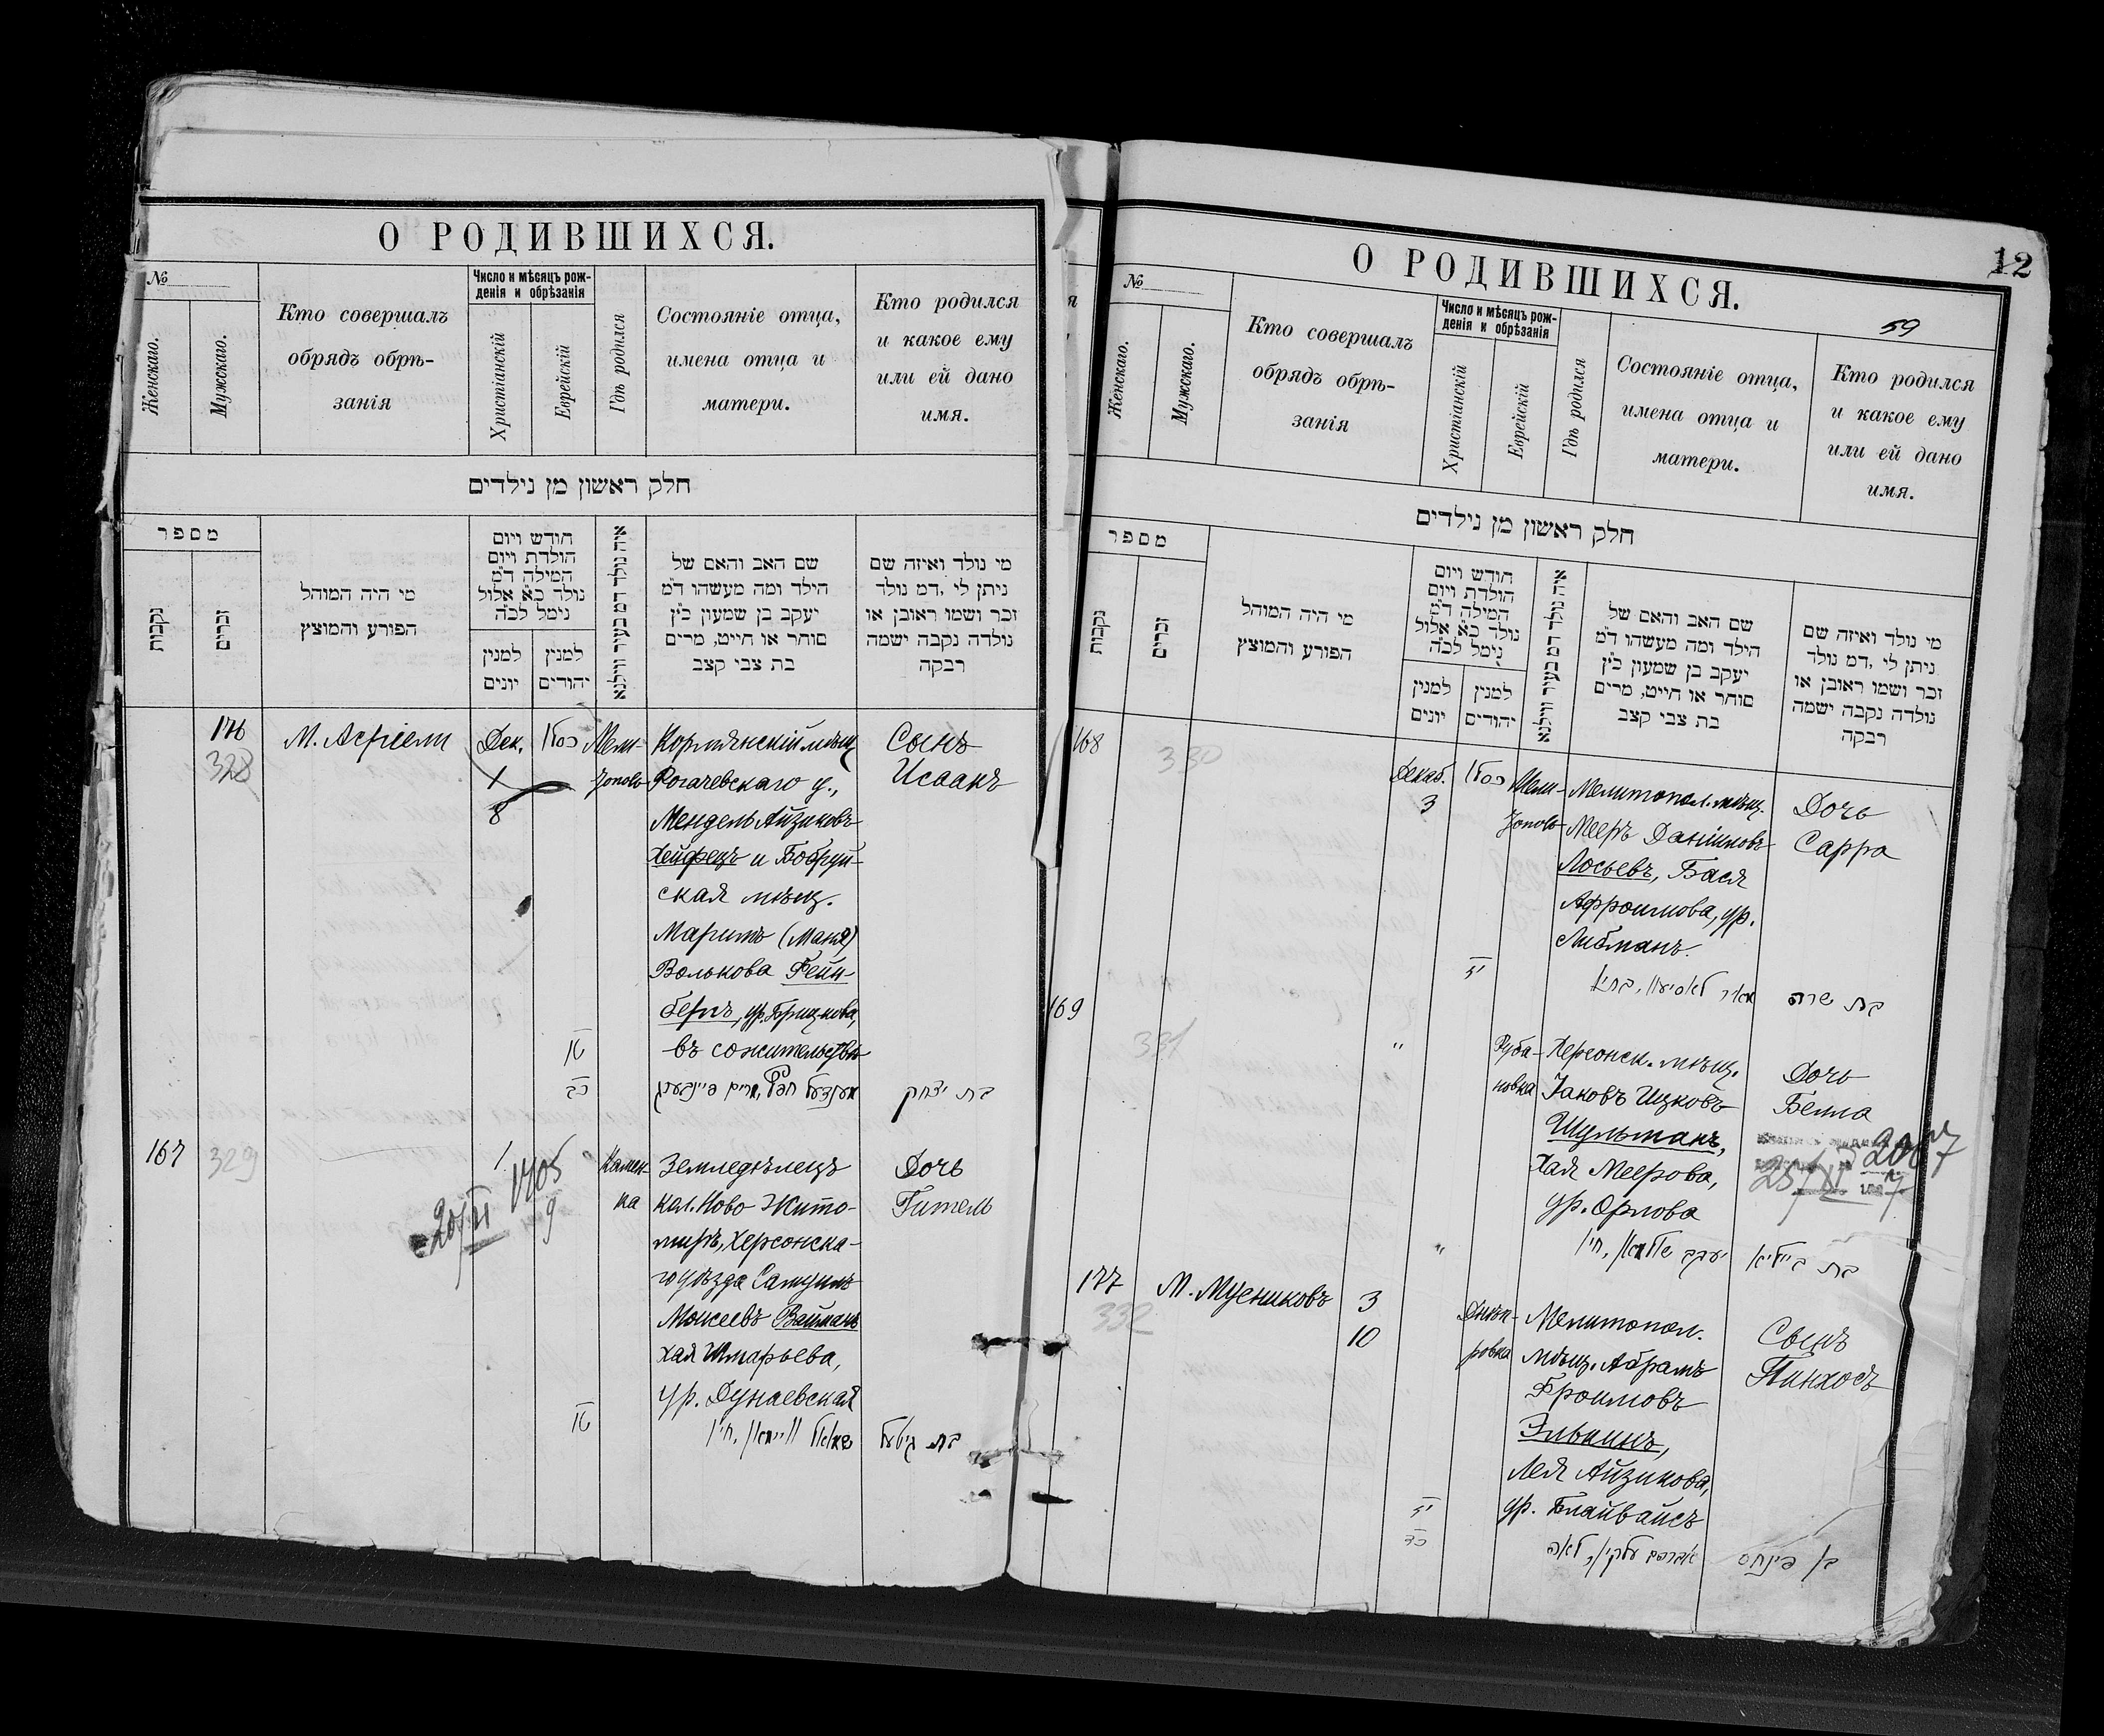 О РОДИВШИХСЯ.
№
Женскаго.
Мужскаго.
Кто совершалъ
обрядъ обрѣ-
занія
Число и мѣсяцъ рож-
денія и обрѣзанія
Христіанскій
Еврейскій
Гдѣ родился
Состояніе отца,
имена отца и
матери.
Кто родился
и какое ему
или ей дано
имя.
חלק ראשון מן נילדים
מספר
נקבות
זכרים
מי היה המוהל
הפורע והמוצץ
חודש ויום
הולדת ויום
המילה ד״מ
נולד כ״א אלול
נימל לכ״ה
למנין
יונים
למנין
יהודים
איה נולד דמ בעיר ווילנא
שם האב והאם של
הילד ומה מעשהו ד״מ
יעקב בן שמעון כ״ץ
סוחר או חייט, מרים
בת צבי קצב
מי נולד ואיזה שם
ניתן לי ,דמ נולד
זכר ושמו ראובן או
נולדה נקבה ישמה
רבקה
176
328
Дек.
1
8
כסלו
Мели-
тополь
мѣщ
Рогачевскаго у.,
Мендель Айзиковъ
Хейфецъ и Бобруй-
ская мѣщ.
Маримъ (Маня)
Волькова Фейн-
бергъ, ур.
въ сожительствѣ
Сынъ
Исаакъ
יצחק
167
329
1
9
Камен
ка
Земледѣлецъ
кол. Ново Жито-
миръ, Херсонска-
го уѣзда Самуилъ
Моисеевъ Вайманъ
Хая Шмарьева,
ур. Дунаевская
Дочь
Гитель
בת גיטעל
12
59
О РОДИВШИХСЯ.
№
Женскаго.
Мужскаго.
Кто совершалъ
обрядъ обрѣ-
занія
Число и мѣсяцъ рож-
денія и обрѣзанія
Христіанскій
Еврейскій
Гдѣ родился
Состояніе отца,
имена отца и
матери.
Кто родился
и какое ему
или ей дано
имя.
חלק ראשון מן נילדים
מספר
נקבות
זכרים
מי היה המוהל
הפורע והמוצץ
חודש ויום
הולדת ויום
המילה ד״מ
נולד כ״א אלול
נימל לכ״ה
למנין
יונים
למנין
יהודים
איה נולד דמ בעיר ווילנא
שם האב והאם של
הילד ומה מעשהו ד״מ
יעקב בן שמעון כ״ץ
סוחר או חייט, מרים
בת צבי קצב
מי נולד ואיזה שם
ניתן לי ,דמ נולד
זכר ושמו ראובן או
נולדה נקבה ישמה
רבקה
168
330
Декаб.
3
כסלו
Мели-
тополь
Мелитопол. мѣщ.
Мееръ Даниловъ
Лосьевъ, Бася
Афроимова, ур.
Либманъ.
Дочь
Сарра
בת שרה
169
331
"
Руба-
новка
Херсонск. мѣщ.
Іаковъ Ицковъ
Шульманъ,
Хая Меерова,
ур. Орлова
יעקב שולמאן, חי׳
Дочь
Белла
בת ביילא
177
332
М. Мусниковъ
3
10
Днѣп-
ровка
Мелитопол.
мѣщ. Абрамъ
Фроимовъ
Элькинъ,
Лея Айзикова,
ур. Блайвайсъ
אברהם עלקין, לאה
Сынъ
Пинхосъ
בן פינחס